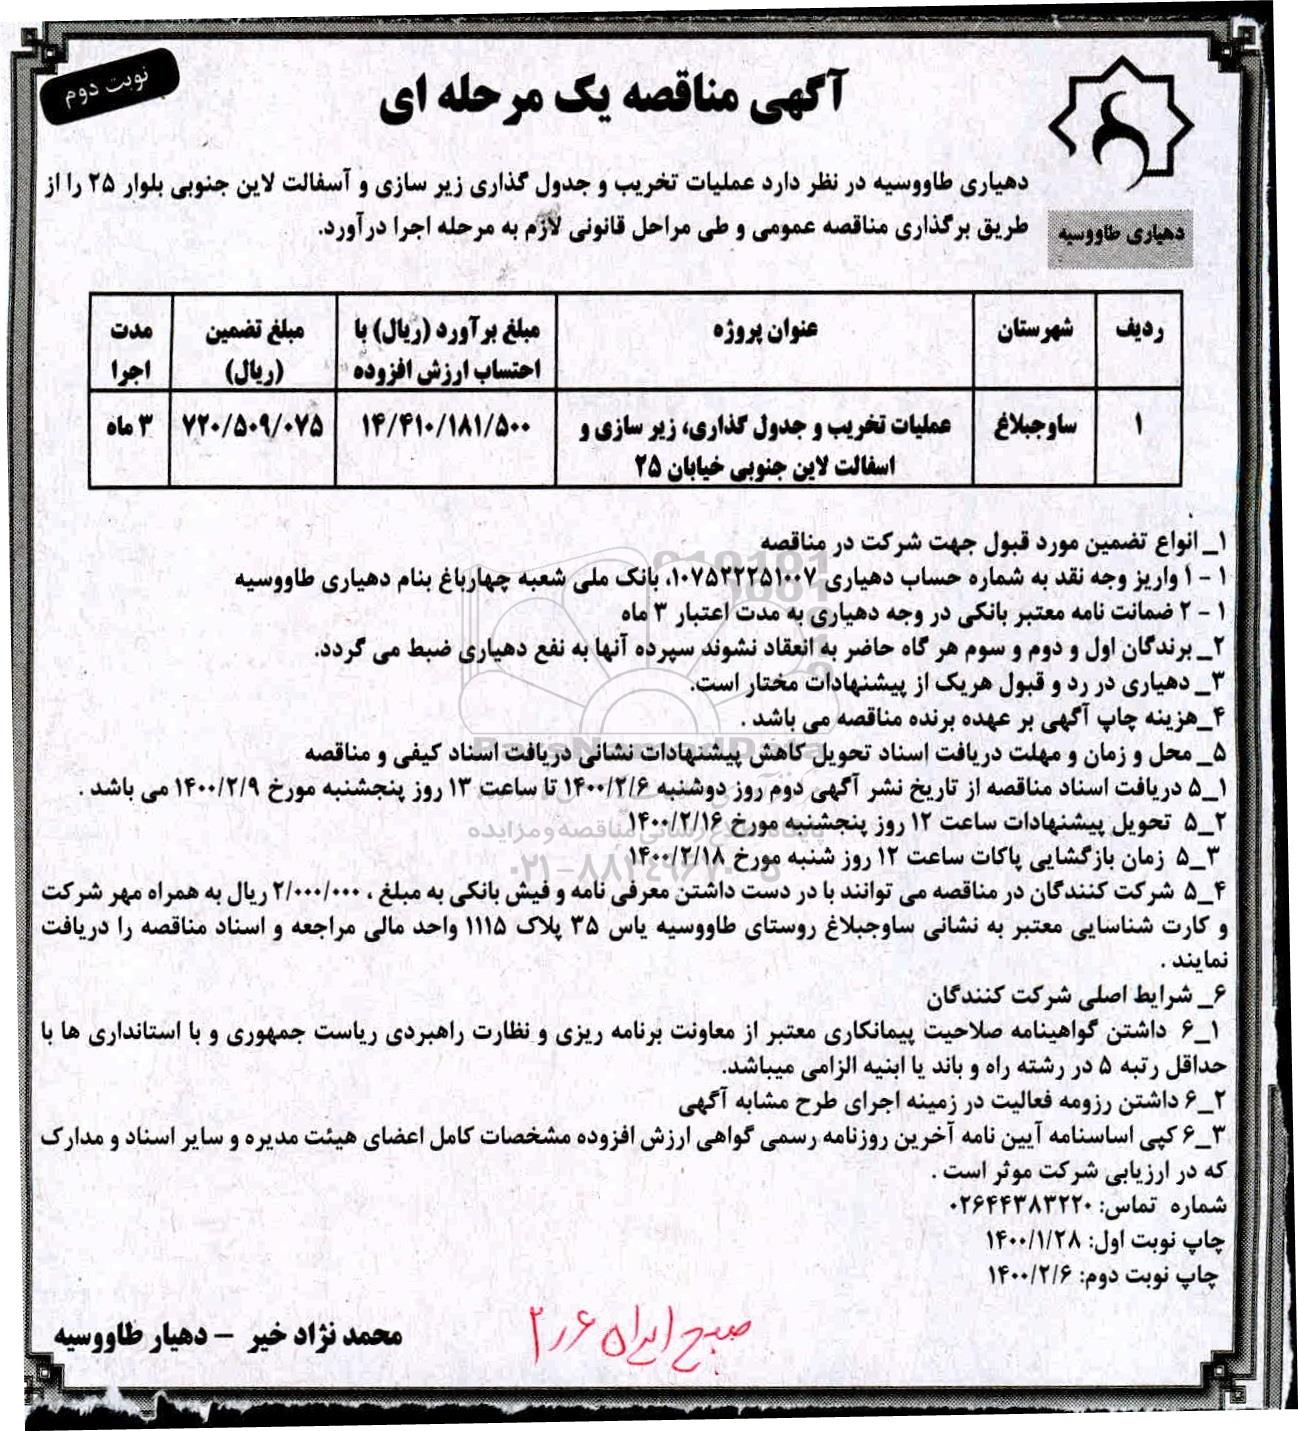 نوبت دوم
آگهی مناقصه یک مرحله ای
دهیاری طاووسیه
دهیاری طاووسیه در نظر دارد عملیات تخریب و جدول گذاری زیر سازی و آسفالت لاین جنوبی بلوار ۲۵ را از
طریق برگذاری مناقصه عمومی و طی مراحل قانونی لازم به مرحله اجرا درآورد.
ردیف شهرستان عنوان پروژه مبلغ برآورد (ریال) با احتساب ارزش افزوده مبلغ تضمین (ریال) مدت اجرا
۱ ساوجبلاغ عملیات تخریب و جدول گذاری، زیر سازی و اسفالت لاین جنوبی خیابان ۲۵ ۱۴/۴۱۰/۱۸۱/۵۰۰ ۷۲۰/۵۰۹/۰۷۵ ۳ ماه
۱_ انواع تضمین مورد قبول جهت شرکت در مناقصه
۱ - ۱ واریز وجه نقد به شماره حساب دهیاری ۱۰۷۵۲۲۲۵۱۰۰۷، بانک ملی شعبه چهارباغ بنام دهیاری طاووسیه
۱ - ۲ ضمانت نامه معتبر بانکی در وجه دهیاری به مدت اعتبار ۳ ماه
۲_ برندگان اول و دوم و سوم هر گاه حاضر به انعقاد نشوند سپرده آنها به نفع دهیاری ضبط می گردد.
۳_ دهیاری در رد و قبول هریک از پیشنهادات مختار است.
۴_هزینه چاپ آگهی بر عهده برنده مناقصه می باشد .
۵_ محل و زمان و مهلت دریافت اسناد تحویل کاهش پیشنهادات نشانی دریافت اسناد کیفی و مناقصه
۵_۱ دریافت اسناد مناقصه از تاریخ نشر آگهی دوم روز دوشنبه ۱۴۰۰/۲/۶ تا ساعت ۱۳ روز پنجشنبه مورخ ۱۴۰۰/۲/۹ می باشد .
۵_۲ تحویل پیشنهادات ساعت ۱۲ روز پنجشنبه مورخ ۱۴۰۰/۲/۱۶
۵_۳ زمان بازگشایی پاکات ساعت ۱۲ روز شنبه مورخ ۱۴۰۰/۲/۱۸
۵_۴ شرکت کنندگان در مناقصه می توانند با در دست داشتن معرفی نامه و فیش بانکی به مبلغ ، ۲/۰۰۰/۰۰۰ ریال به همراه مهر شرکت
و کارت شناسایی معتبر به نشانی ساوجبلاغ روستای طاووسیه یاس ۳۵ پلاک ۱۱۱۵ واحد مالی مراجعه و اسناد مناقصه را دریافت
نمایند .
۶_ شرایط اصلی شرکت کنندگان
۶_۱ داشتن گواهینامه صلاحیت پیمانکاری معتبر از معاونت برنامه ریزی و نظارت راهبردی ریاست جمهوری و با استانداری ها با
حداقل رتبه ۵ در رشته راه و باند یا ابنیه الزامی میباشد.
۶_۲ داشتن رزومه فعالیت در زمینه اجرای طرح مشابه آگهی
۶_۳ کپی اساسنامه آیین نامه آخرین روزنامه رسمی گواهی ارزش افزوده مشخصات کامل اعضای هیئت مدیره و سایر اسناد و مدارک
که در ارزیابی شرکت موثر است .
شماره تماس: ۰۲۶۴۴۳۸۳۲۲۰
چاپ نوبت اول: ۱۴۰۰/۱/۲۸
چاپ نوبت دوم: ۱۴۰۰/۲/۶
محمد نژاد خیر - دهیار طاووسیه
صبح ایران ۲٫۶